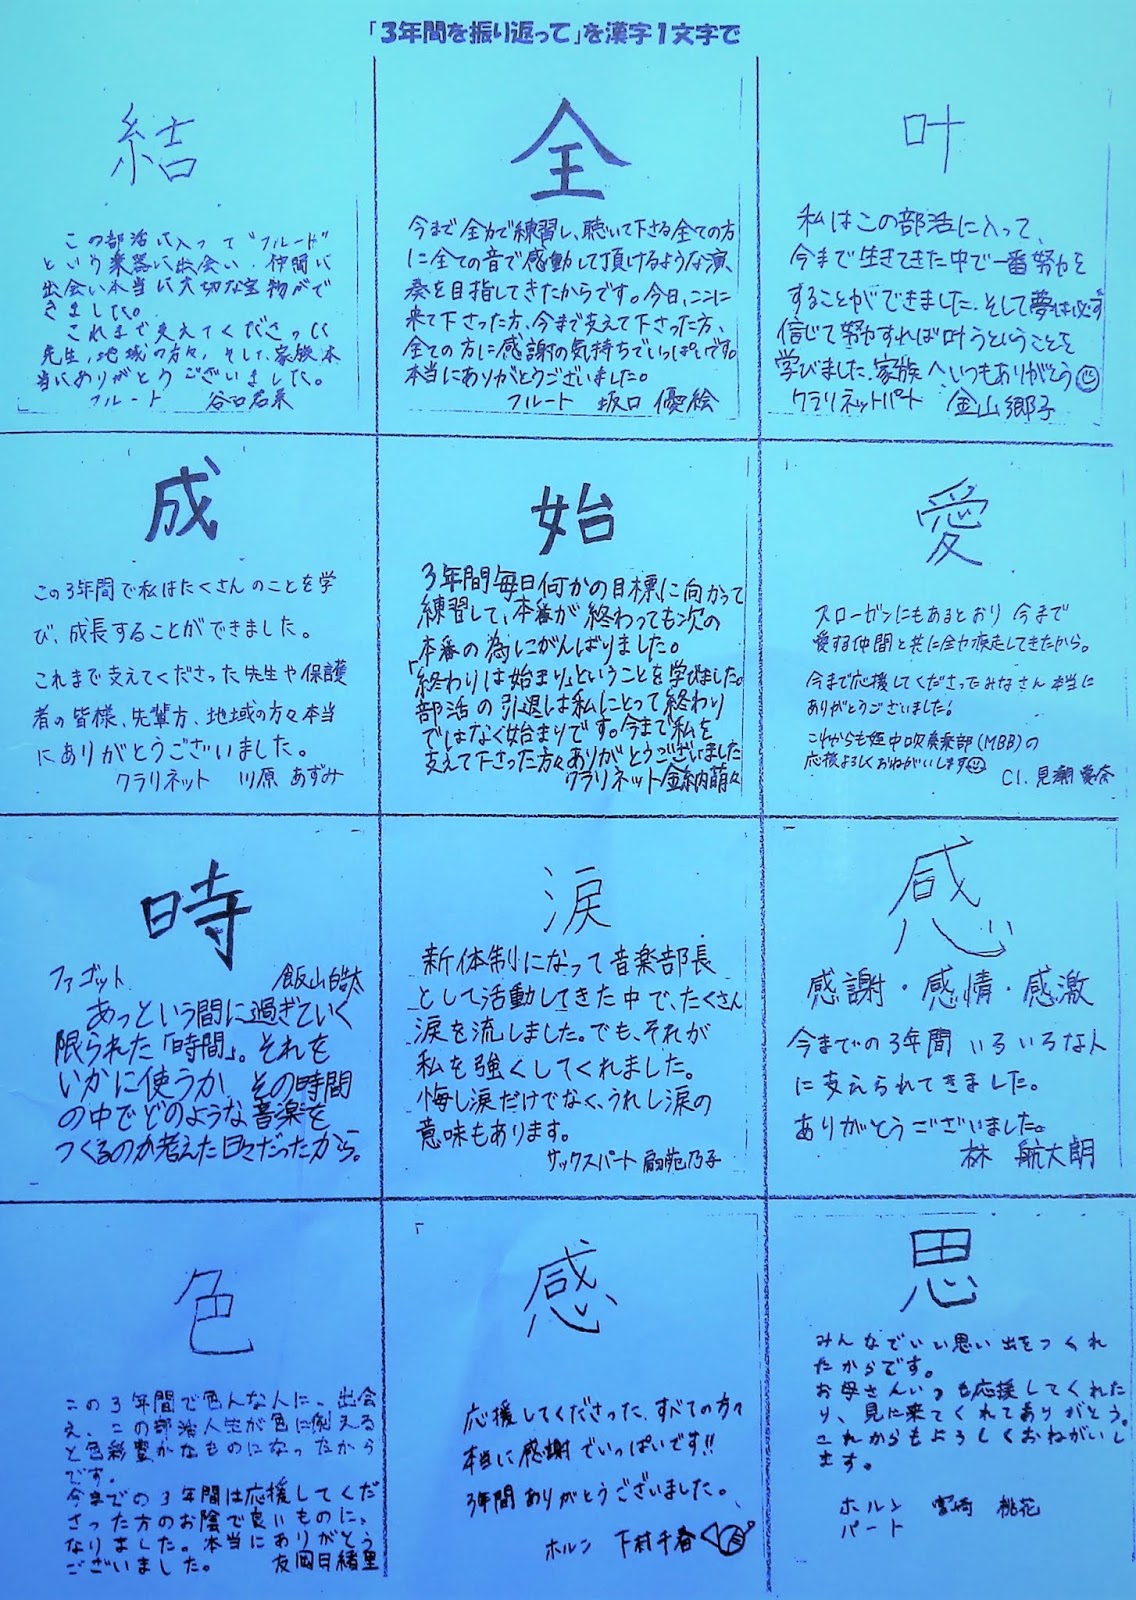 「3年間を振り返って」を漢字1文字で
結
この部活に入って"フルート"
という楽器に出会い、仲間に
出会い本当に大切な宝物がで
きました。
これまで支えてくださった
先生、地域の方々、そして、家族、本
当にありがとうございました。
フルート 谷口
全
今まで全力で練習し、聴いて下さる全ての方
に全ての音で感動して頂けるような演
奏を目指してきたからです。今日、ここに
来て下さった方、今まで支えて下さった方、
全ての方に感謝の気持ちでいっぱいです。
本当にありがとうございました。
フルート 坂口 優絵
叶
私はこの部活に入って、
今まで生きてきた中で一番努力を
することができました。そして夢は必ず
信じて努力すれば叶うということを
学びました。家族へいつもありがとう
クラリネットパート 金山郷子
成
この3年間で私はたくさんのことを学
び、成長することができました。
これまで支えてくださった先生や保護
者の皆様、先輩方、地域の方々本当
にありがとうございました。
クラリネット 川原 あずみ
始
3年間毎日何かの目標に向かって
練習して、本番が終わっても次の
本番の為にがんばりました。
「終わりは始まり」ということを学びました。
部活の引退は私にとって終わり
ではなく始まりです。今まで私を
支えて下さった方々ありがとうございました
クラリネット 金納萌々
愛
スローガンにもあるとおり 今まで
愛する仲間と共に全力疾走してきたから。
今まで応援してくださったみなさん本当に
ありがとうございました!
これからも姪中吹奏楽部(MBB)の
応援よろしくおねがいします
Cl. 見潮 愛奈
時
ファゴット 飯山皓太
あっという間に過ぎていく
限られた「時間」。それを
いかに使うか、その時間
の中でどのような音楽を
つくるのか考えた日々だったから。
涙
新体制になって音楽部長
として活動してきた中で、たくさん
涙を流しました。でも、それが
私を強くしてくれました。
悔し涙だけでなく、うれし涙の
意味もあります。
サックスパート 乃子
感
感謝・感情・感激
今までの3年間 いろいろな人
に支えられてきました。
ありがとうございました。
林 航大朗
色
この3年間で色んな人に、出会
え、この部活人生が色に例える
と色彩豊かなものになったから
です。
今までの3年間は応援してくだ
さった方のお陰で良いものに、
なりました。本当にありがとう
ございました。 友岡日緒里
感
応援してくださった、すべての方々
本当に感謝でいっぱいです!!
3年間ありがとうございました。
ホルン 下村千春
思
みんなでいい思い出をつくれ
たからです。
お母さんいつも応援してくれた
り、見に来てくれてありがとう。
これからもよろしくおねがいし
ます。
ホルン 宮崎 桃花
パート